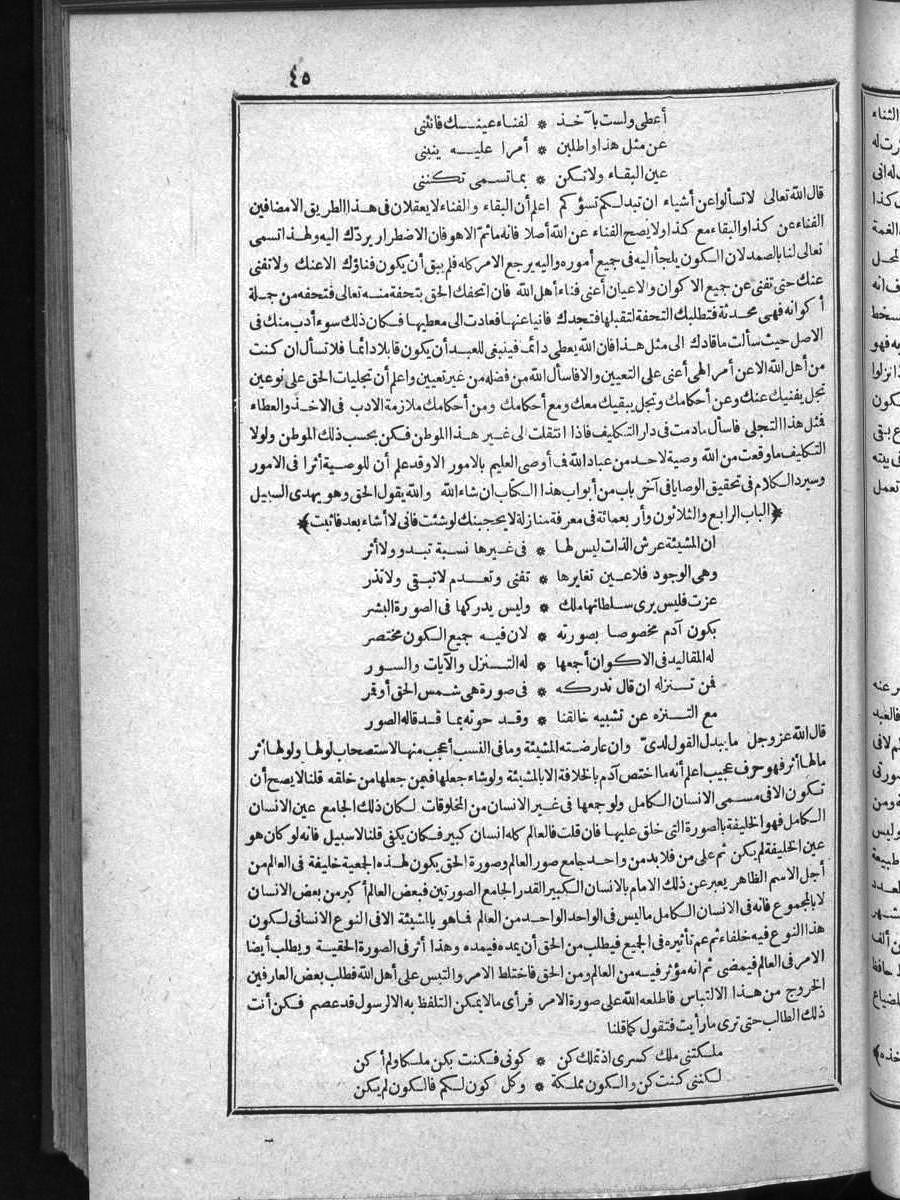 ٤٥
أعطى ولست بآخذ * لفناء عينك فانثنى
عن مثل هذا واطلبن * أمرا عليه ينبنى
عين البقاء ولا تكن * بما تسمى تكتنى
قال الله تعالى لا تسألوا عن أشياء ان تبد لكم تسؤكم اعلم أن البقاء والفناء لا يعقلان فى هذا الطريق الا مضافين
الفناء عن كذا والبقاء مع كذا ولا يصح الفناء عن الله أصلا فانه ما ثم الا هو فان الاضطرار يردّك اليه ولهذا تسمى
تعالى لنا بالصمد لان الكون يلجأ اليه فى جميع أموره واليه يرجع الامر كله فلم يبق أن يكون فناؤك الا عنك ولا تفنى
عنك حتى تفنى عن جميع الاكوان والاعيان أعنى فناء أهل الله فان اتحفك الحق بتحفة منه تعالى فتحفه من جملة
أكوانه فهى محدثة فتطلبك التحفة لتقبلها فتجدك فانيا عنها فعادت الى معطيها فكان ذلك سوء أدب منك فى
الاصل حيث سألت ما قادك الى مثل هذا فان الله يعطى دائما فينبغى للعبد أن يكون قابلا دائما فلا تسأل ان كنت
من أهل الله الا عن أمر الهى أعنى على التعيين والا فاسأل الله من فضله من غير تعيين واعلم أن تجليات الحق على نوعين
تجل يفنيك عنك وعن أحكامك وتجل يبقيك معك ومع أحكامك ومن أحكامك ملازمة الادب فى الاخذ والعطاء
فمثل هذا التجلى فاسأل مادمت فى دار التكليف فاذا انتقلت الى غير هذا الموطن فكن بحسب ذلك الموطن ولولا
التكليف ما وقعت من الله وصية لاحد من عباد الله فما أوصى العليم بالامور الا وقد علم أن للوصية أثرا فى الامور
وسيرد الكلام فى تحقيق الوصايا فى آخر باب من أبواب هذا الكتاب ان شاء الله والله يقول الحق وهو يهدى السبيل
﴿الباب الرابع والثلاثون وأربعمائة فى معرفة منازلة لا يحجبنك لو شئت فانى لا أشاء بعد فاثبت﴾
ان المشيئة عرش الذات ليس لها * فى غيرها نسبة تبدو ولا أثر
وهى الوجود فلا عين تغايرها * تفنى وتعدم لا تبقى ولا تذر
عزت فليس يرى سلطانها ملك * وليس يدركها فى الصورة البشر
بكون آدم مخصوصا بصورته * لان فيه جميع الكون مختصر
له المقاليد فى الاكوان أجمعها * له التنزل والآيات والسور
فمن تنزله ان قال ندركه * فى صورة هى شمس الحق أو قمر
مع التنزه عن تشبيه خالقنا * وقد حوته بما قد قاله الصور
قال الله عز وجل ما يبدل القول لدىّ وان عارضته المشيئة وما فى النسب أعجب منها لاستصحاب لولها ولولها أثر
ما لها أثر فهو حرف عجيب اعلم أنه ما اختص آدم بالخلافة الا بالمشيئة ولو شاء جعلها فيمن جعلها من خلقه قلنا لا يصح أن
تكون الا فى مسمى الانسان الكامل ولو جمعها فى غير الانسان من المخلوقات لكان ذلك الجامع عين الانسان
الكامل فهو الخليفة بالصورة التى خلق عليها فان قلت فالعالم كله انسان كبير فكان يكفى قلنا لا سبيل فانه لو كان هو
عين الخليفة لم يكن ثم على من فلا بد من واحد جامع صور العالم وصورة الحق يكون لهذه الجمعية خليفة فى العالم من
أجل الاسم الظاهر يعبر عن ذلك الامام بالانسان الكبير القدر الجامع الصورتين فبعض العالم أكبر من بعض الانسان
لا بالمجموع فانه فى الانسان الكامل ما ليس فى الواحد الواحد من العالم فما هو بالمشيئة الا فى النوع الانسانى لكون
هذا النوع فيه خلفاء ثم عم تأثيره فى الجميع فيطلب من الحق أن يمده فيمده وهذا أثر فى الصورة الحقية ويطلب أيضا
الامر فى العالم فيمضى ثم انه مؤثر فيه من العالم ومن الحق فاختلط الامر والتبس على أهل الله فطلب بعض العارفين
الخروج من هذا الالتباس فاطلعه الله على صورة الامر فرأى ما لا يمكن التلفظ به الا لرسول قد عصم فكن أنت
ذلك الطالب حتى ترى ما رأيت فتقول كما قلنا
ملكتنى ملك كسرى اذ تملك كن * كونى فكنت بكن ملكا ولم أكن
لكننى كنت كن والكون مملكة * وكل كون لكم فالكون لم يكن